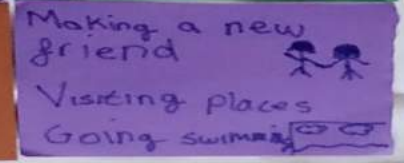 Making a new
friend
Visiting places
Going swimming